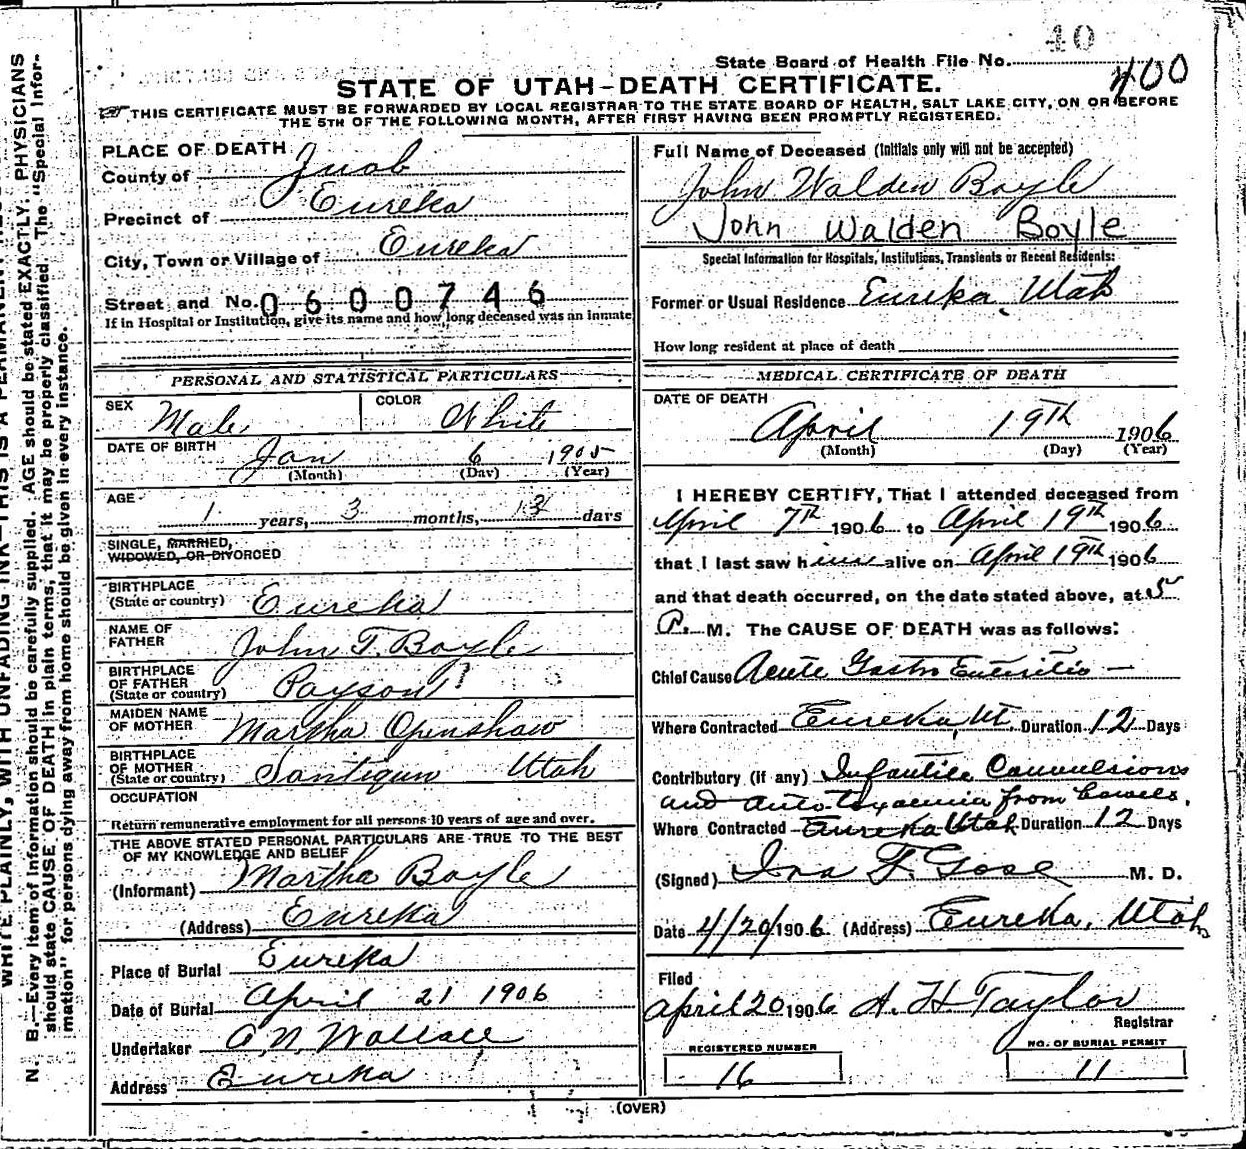 40
State Board of Health File No. 400
STATE OF UTAH-DEATH CERTIFICATE.
THIS CERTIFICATE MUST BE FORWARDED BY LOCAL REGISTRAR TO THE STATE BOARD OF HEALTH, SALT LAKE CITY, ON OR BEFORE
THE 5TH OF THE FOLLOWING MONTH, AFTER FIRST HAVING BEEN PROMPTLY REGISTERED.
PLACE OF DEATH
County of Juab
Precinct of Eureka
City, Town or Village of Eureka
Street and No. 0600746
If in Hospital or Institution, give its name and how long deceased was an inmate
PERSONAL AND STATISTICAL PARTICULARS
SEX Male COLOR White
DATE OF BIRTH Jan 6 1905
(Month) (Day) (Year)
AGE
1 years, 3 months, 13 days
SINGLE, MARRIED,
WIDOWED, OR DIVORCED
BIRTHPLACE
(State or country) Eureka
NAME OF
FATHER John T. Boyle
BIRTHPLACE
OF FATHER
(State or country) Payson
MAIDEN NAME
OF MOTHER Martha Openshaw
BIRTHPLACE
OF MOTHER
(State or country) Santiqun Utah
OCCUPATION
Return remunerative employment for all persons 10 years of age and over.
THE ABOVE STATED PERSONAL PARTICULARS ARE TRUE TO THE BEST
OF MY KNOWLEDGE AND BELIEF
(Informant) Martha Boyle
(Address) Eureka
Place of Burial Eureka
Date of Burial April 21 1906
Undertaker A. N. Wallace
Address Eureka
Full Name of Deceased (Initials only will not be accepted)
John Walden Boyle
John Walden Boyle
Special Information for Hospitals, Institutions, Transients or Recent Residents:
Former or Usual Residence Eureka, Utah
How long resident at place of death
MEDICAL CERTIFICATE OF DEATH
DATE OF DEATH
April 19th 1906
(Month) (Day) (Year)
I HEREBY CERTIFY, That I attended deceased from
April 7th 1906 to April 19th 1906
that I last saw him alive on April 19th 1906
and that death occurred, on the date stated above, at 5
P. M. The CAUSE OF DEATH was as follows:
Chief Cause Acute Gastro Enteritis
Where Contracted Eureka, Ut. Duration 12 Days
Contributory (if any) Infantile Convulsions
and autotoxaemia from bowels.
Where Contracted Eureka Utah Duration 12 Days
(Signed) Ira F. Gose M. D.
Date 4/20/1906 (Address) Eureka, Utah
Filed
April 20 1906 A. H. Taylor
Registrar
REGISTERED NUMBER
16
NO. OF BURIAL PERMIT
11
(OVER)
WRITE PLAINLY, WITH UNFADING INK—THIS IS A PERMANENT
N. B.—Every item of information should be carefully supplied. AGE should be stated EXACTLY. PHYSICIANS
should state CAUSE OF DEATH in plain terms, that it may be properly classified. The "Special Infor-
mation" for persons dying away from home should be given in every instance.